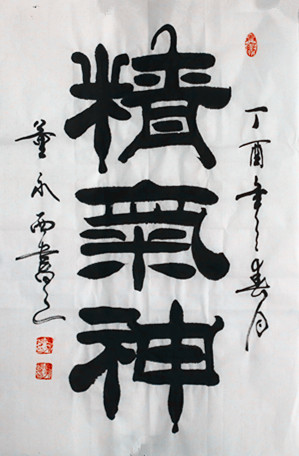 丁酉年之春月
精氣神
董永西書之